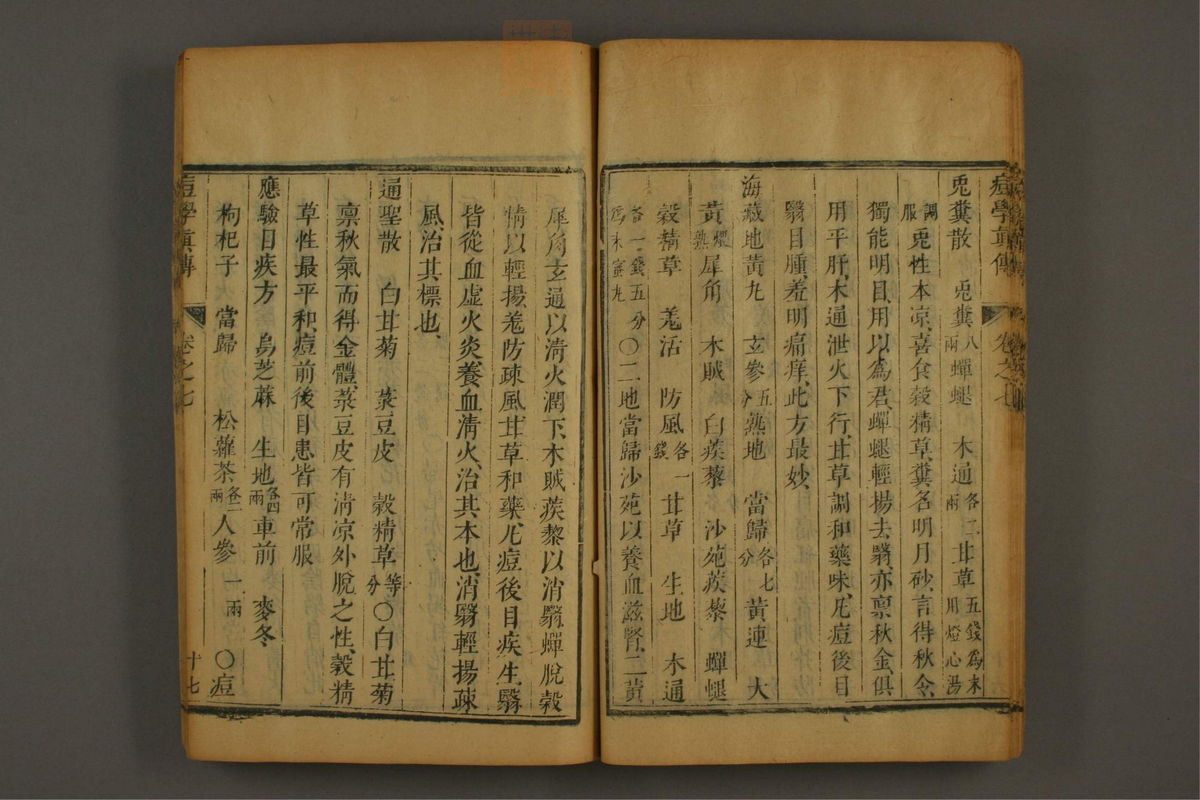 痘學眞傳 卷之七
兎糞散 兎糞八兩 蟬蛻 木通各二兩 甘草五錢爲末用燈心湯
調服 兎性本凉、喜食穀精草、糞名明月砂、言得秋令、
獨能明目、用以爲君、蟬蛻輕揚去翳、亦禀秋金、俱
用平肝、木通泄火下行、甘草調和藥味、凡痘後目
翳目腫、羞明痛痒、此方最妙、
海藏地黃九 玄參五分 熟地 當歸各七分 黃連 大
黃煨熟 犀角 木賊 白蒺藜 沙苑蒺藜 蟬蛻
穀精草 羗活 防風各一錢 甘草 生地 木通
各一錢五分爲末蜜九 〇二地當歸沙苑以養血滋腎、二黃
犀角玄通以淸火潤下、木賊蒺黎以消翳、蟬脫穀
情以輕揚、羗防疎風、甘草和藥、凡痘後目疾生翳、
皆從血虚火炎、養血淸火、治其本也、消翳輕揚疎
風、治其標也、
通聖散 白甘菊 菉豆皮 穀精草等分 〇白甘菊
禀秋氣而得金體、菉豆皮有淸凉外脫之性、穀精
草性最平和、痘前後目患皆可常服
應驗目疾方 烏芝蔴 生地各四兩 車前 麥冬
枸杞子 當歸 松蘿茶各二兩 人參一兩 〇痘
痘學眞傳 卷之七 十七